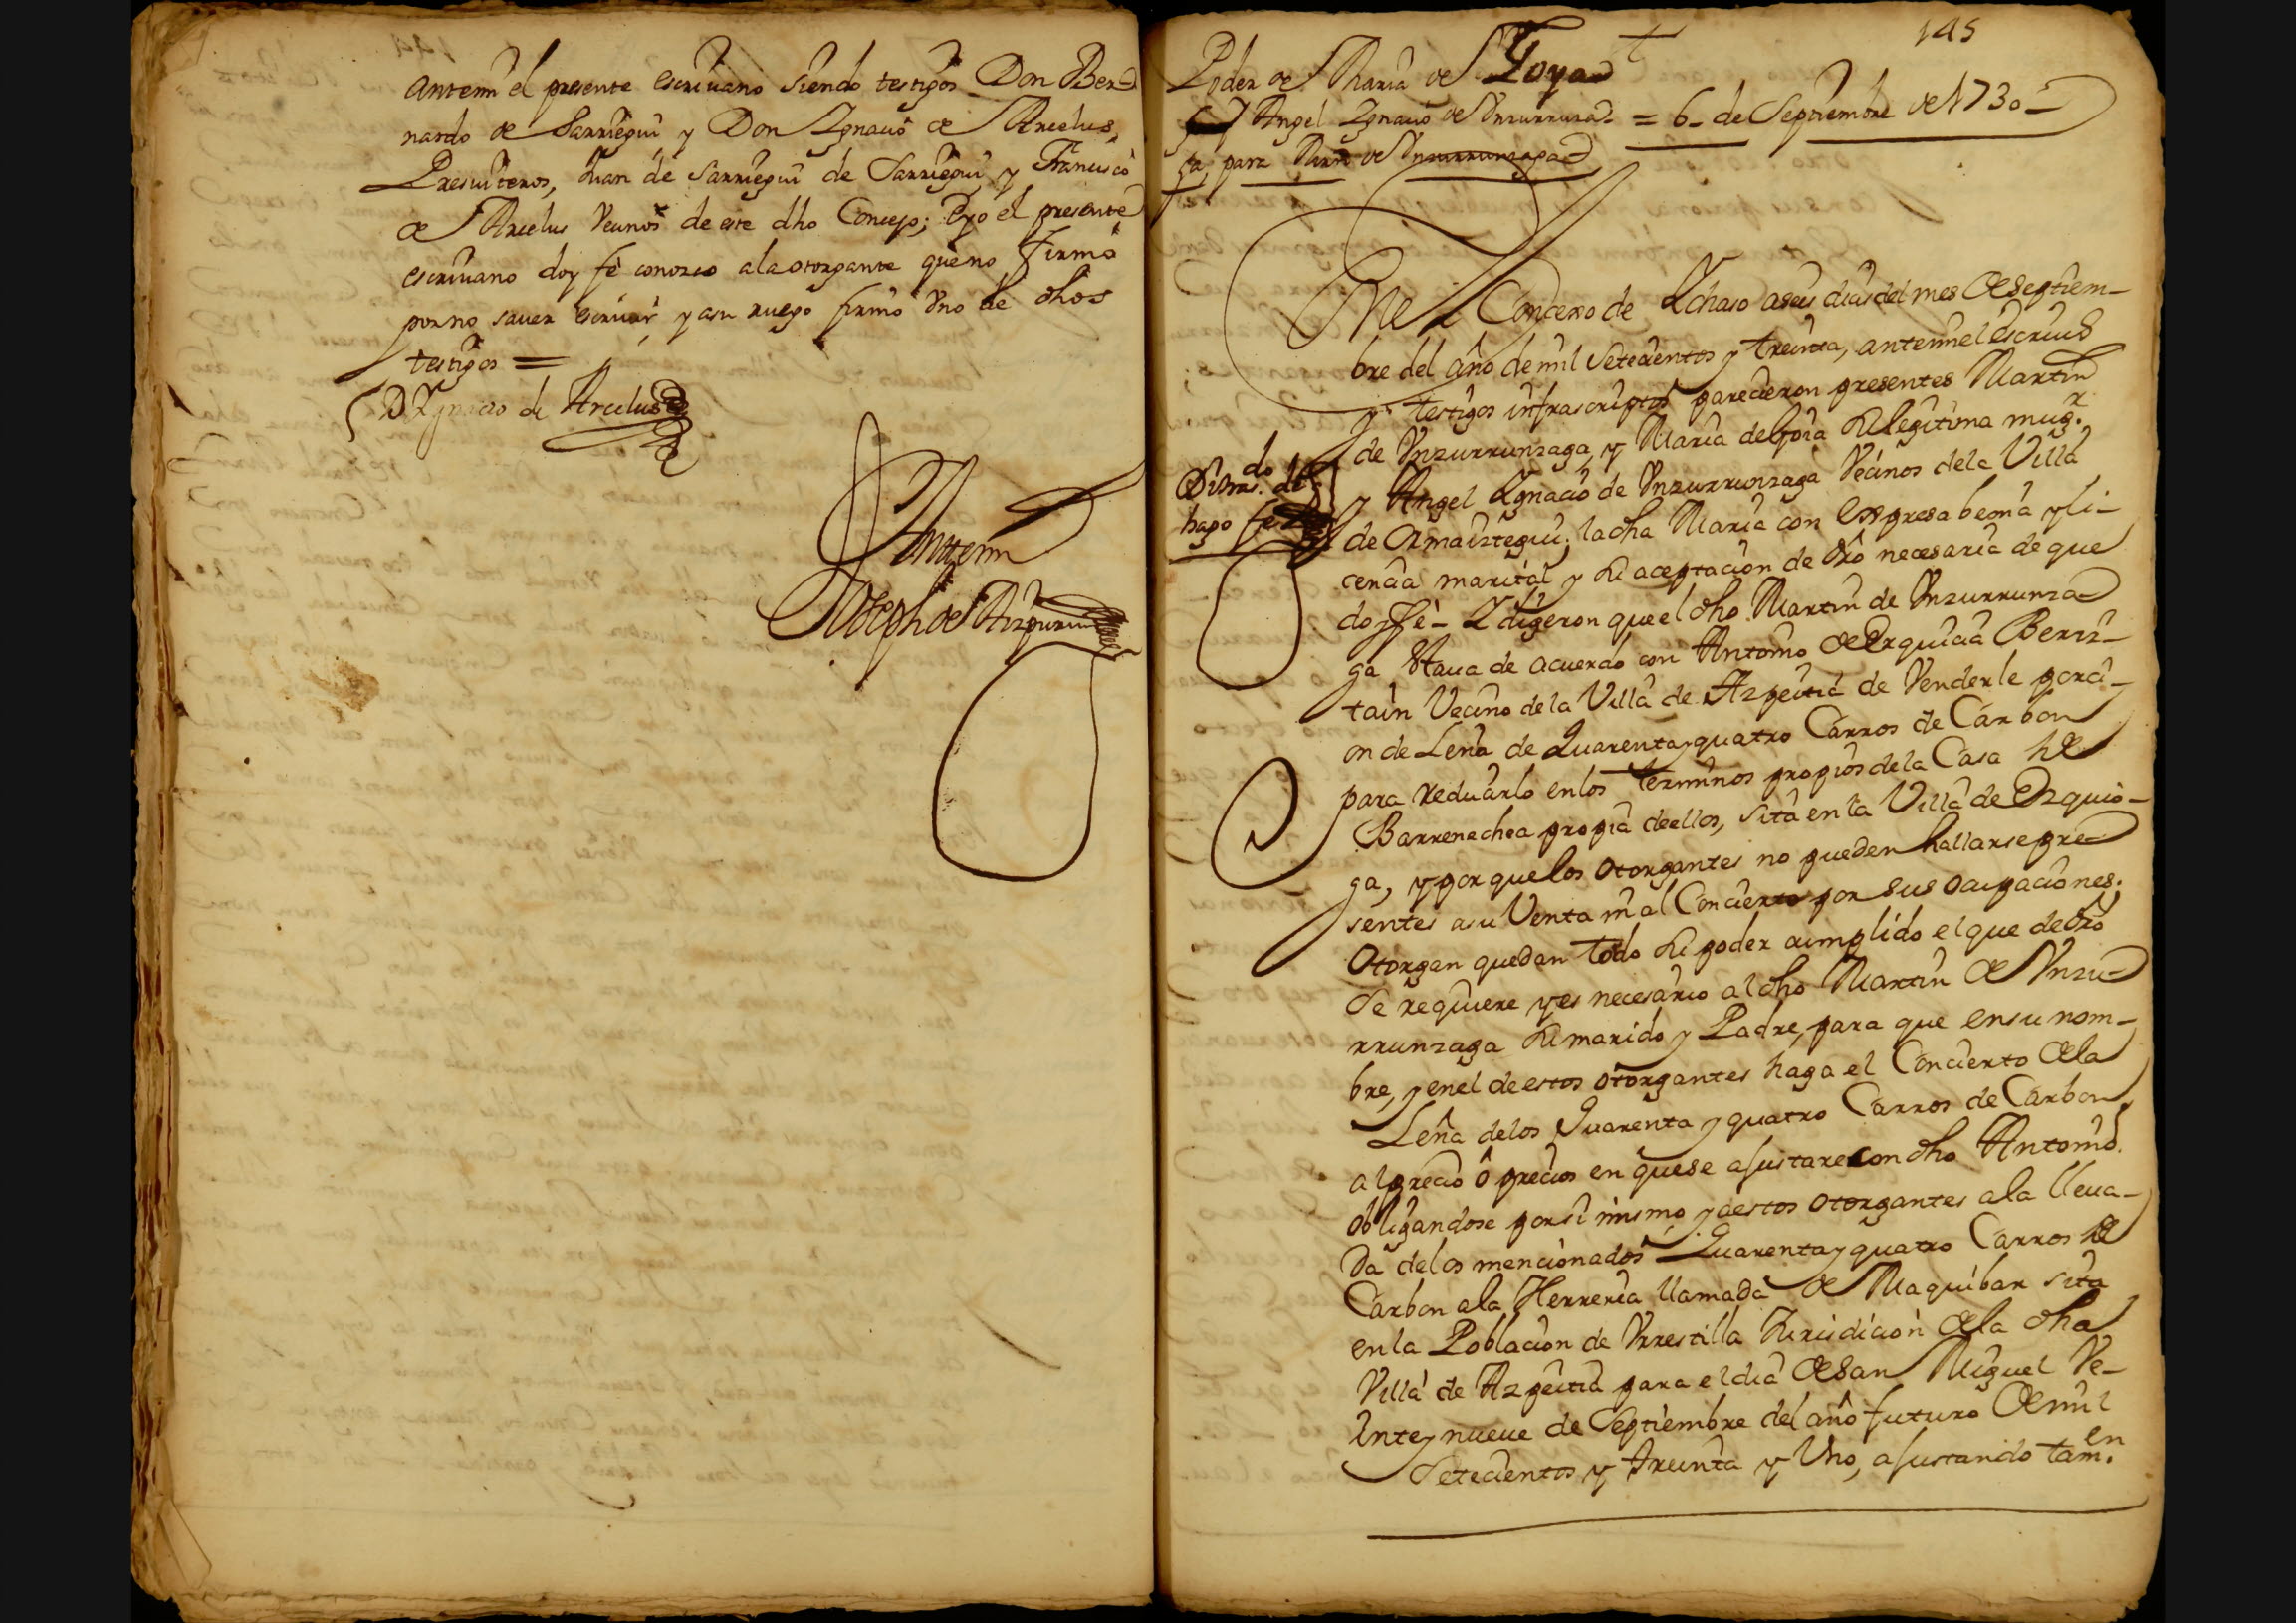 antemi el presente escriuano siendo testigos Don Ber-
nardo de Sarriegui y Don Ignacio de Arcelus,
Presuiteros, Juan de Sarriegui de Sarriegui y Francisco
de Arcelus Vecinos de este dho Concejo; Eyo el presente
escriuano doy fè conozco ala otorgante que no firmò
por no sauer escriuir y asu ruego firmò Vno de dhos
testigos =
D. Ygnacio de Arcelus
Antemi
Joseph de Aizpuru
145
Poder de Maria de Goya
y Angel Ignacio de Vnzurrunza- = 6- de Septiembre de 1730-
ga, para Martin de Vnzurrunzaga
Dibas. do dl
hago fe
En el Concexo de Ichaso a seis dias del mes de Septiem-
bre del año de mil Setecientos y treinta, antemi el escriuo
y testigos infrascriptos parecieron presentes Martin
de Vnzurrunzaga, y Maria de Goia su legitima mugr.
y Angel Ignacio de Vnzurrunzaga Vecinos dela Villa
de Ormaiztegui; la dha Maria con expresa benia y li-
cencia marital y su aceptacion de dro necesaria de que
doy fè- I digeron que el dho Martin de Vnzurrunza-
ga staua de acuerdo con Antonio de Erquicia Beriz-
tain Vecino de la Villa de Azpeitia de Venderle porci-
on de Leña de Quarenta y quatro Carros de Carbon
para reducirlo en los terminos propios de la Casa de
Barrenechea propia deellos, sita en la Villa de Ezquio-
ga, y por que los Otorgantes no pueden hallarse pre-
sentes asu Venta ni al Concierto por sus ocupaciones.
Otorgan quedan todo su poder cumplido el que de dro
se requiere y es necesario al dho Martin de Vnzu-
rrunzaga su marido y Padre, para que en su nom-
bre, y en el de estos otorgantes haga el Concierto dela
Leña delos Quarenta y quatro Carros de Carbon
al precio ô precios en que se ajustare con dho Antonio.
obligandose por si mismo y a estos otorgantes ala lleua-
da delos mencionados Quarenta y quatro Carros de
Carbon ala Herreria llamada de Maquibar sita
en la Poblacion de Vrrestilla Jurisdicion dela dha
Villa de Azpeitia para el dia de San Miguel Ve-
inte y nueue de Septiembre del año futuro de mil
Setecientos y treinta y Vno, ajustando tamen.